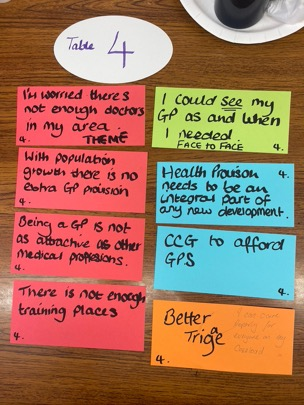 Table 4
I'm worried there's
not enough doctors
in my area.
THEME
4.
With population
growth there is no
extra GP provision
4.
Being a GP is not
as attractive as other
medical professions.
4.
There is not enough
training places
4.
I could see my
GP as and when
I needed.
FACE TO FACE
4.
Health Provison 4.
needs to be an
integral part of
any new development.
CCG to afford
GPS
4.
Better
Triage
4.